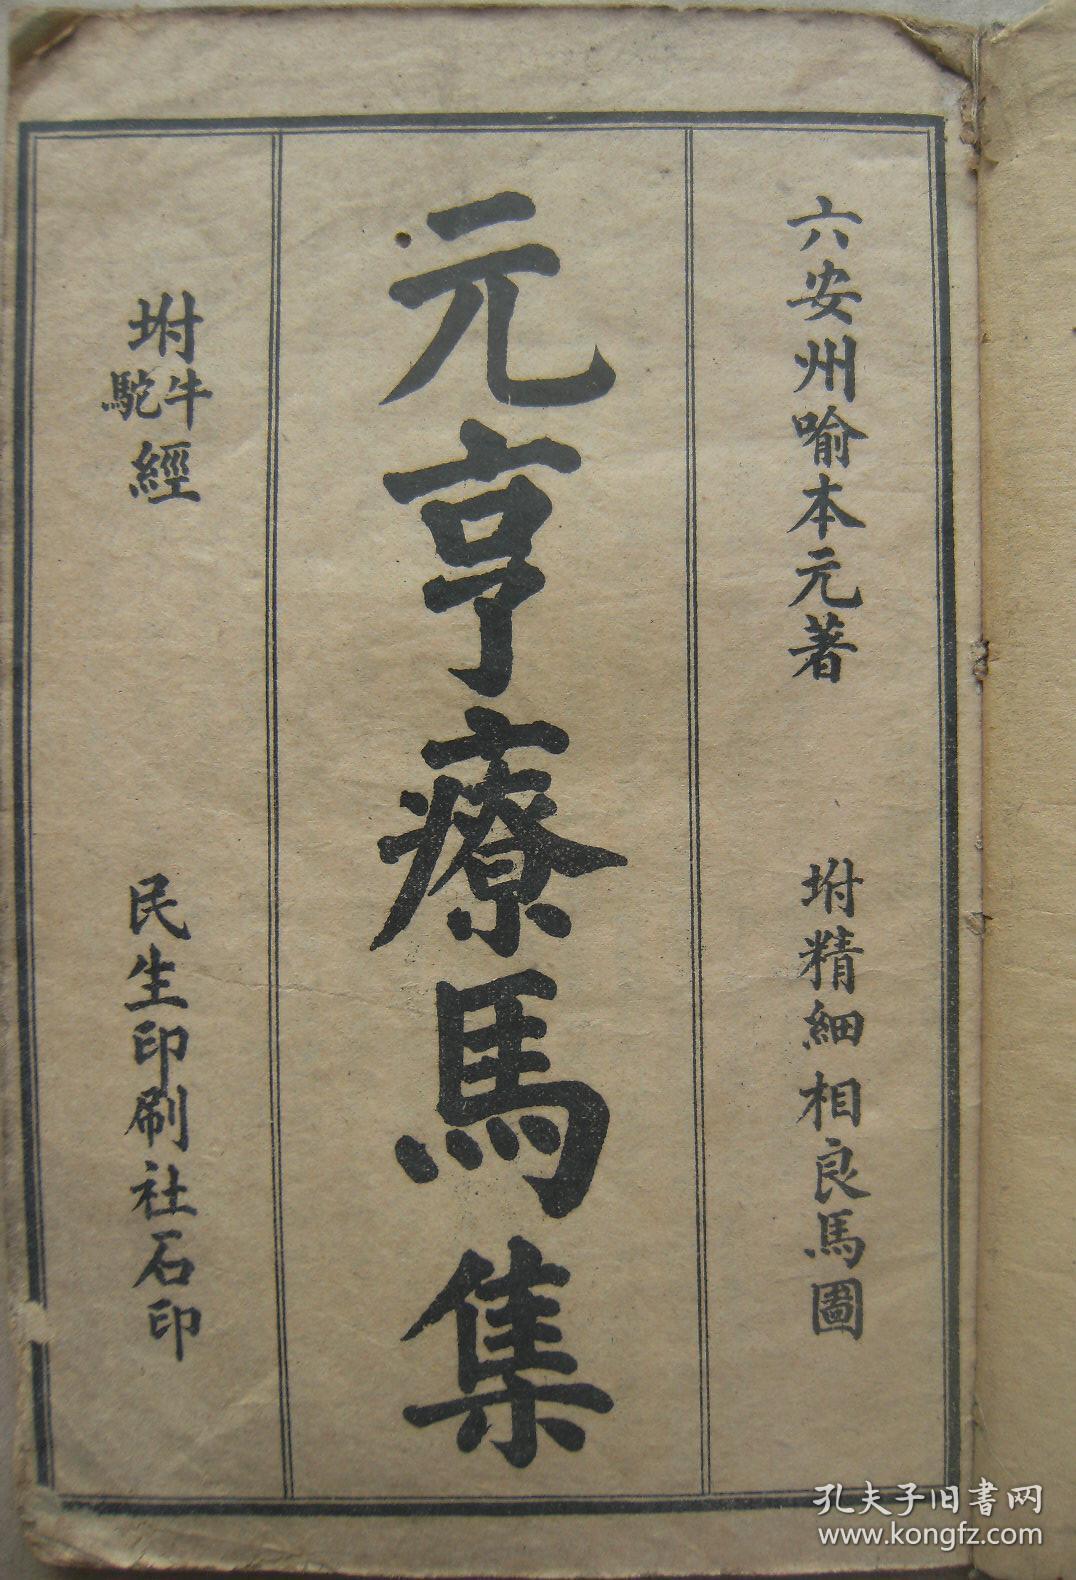 六安州喻本元著
坿精細相良馬圖
元亨療馬集
坿牛駝經
民生印刷社石印
孔夫子旧書网
www.kongfz.com